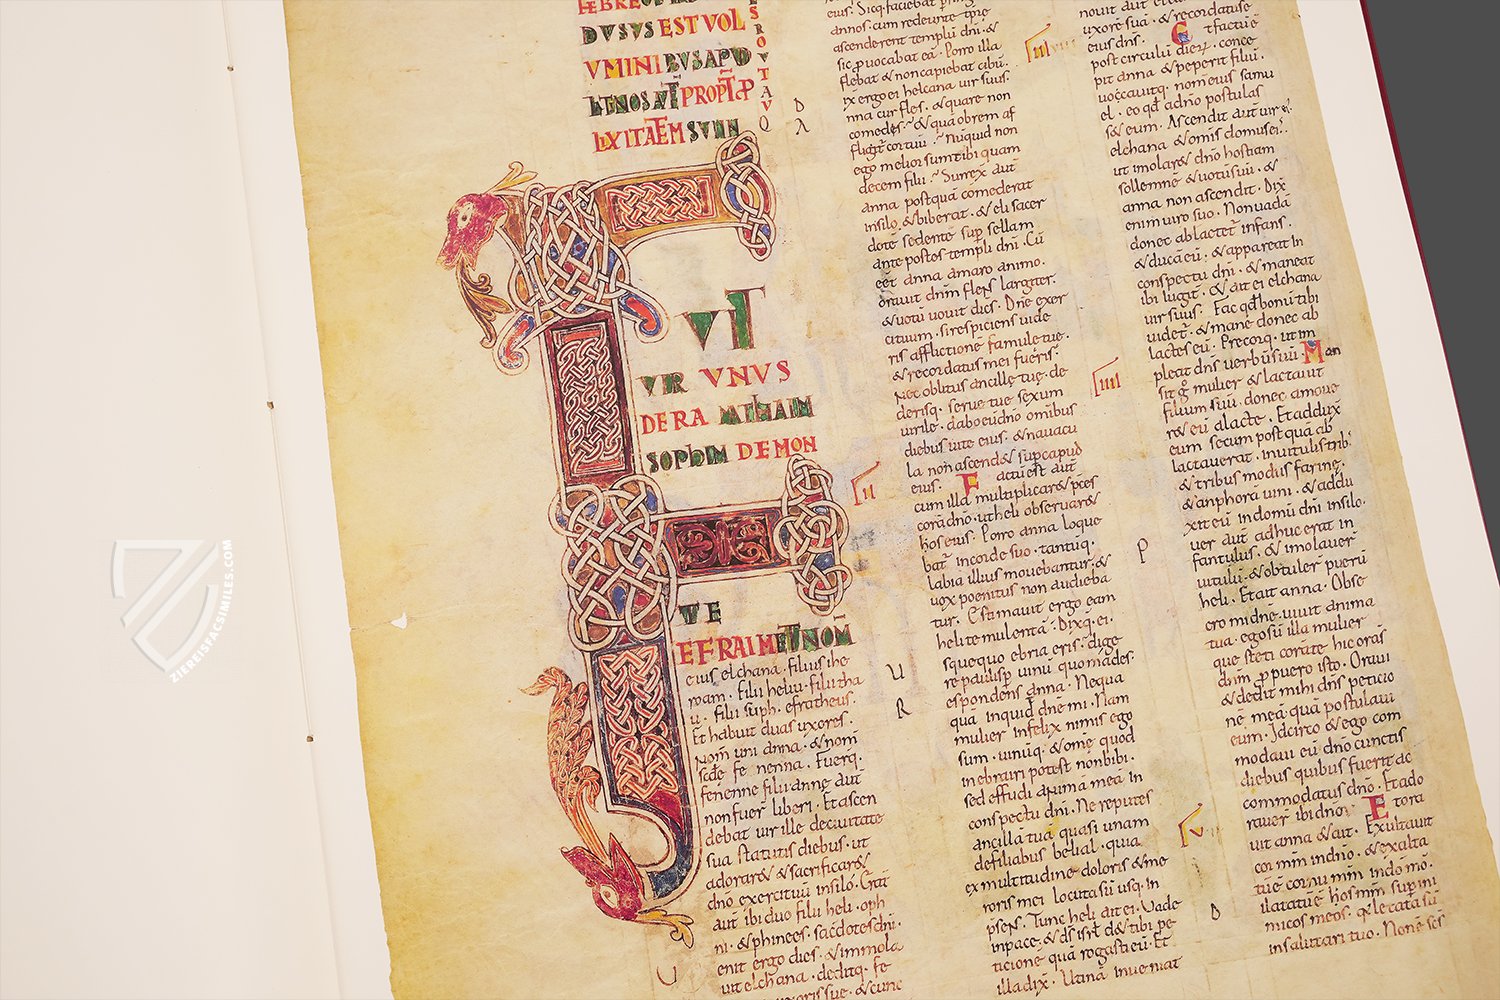 DVSVS EST VOL
VMINIBVS APVD
LIXITATEM SVNN
FVIT
VIR VNVS
DE RA MATHAIM
SOPHIM DE MON
TE
EFRAIM ET NOM
eius elchana · filius ihe
roam · filii heliu · filii tha
u · filii suph · efratheus ·
Et habuit duas uxores ·
Nom uni anna · & nom
fenenne filii anne aut
non fuer liberi · Et ascen
debat uir ille deciuitate
sua statutis diebus · ut
adorar& & sacrificar&
dno exercituū insilo · Erāt
aut ibi duo filii heli · oph
ni · & phinees · sacdotes dni ·
enit ergo dies · & immola
uit elchana · deditq · fe
annos · cum redeunte tpre
ascenderent templū dni · &
sic puocabat eā · Porro illa
flebat & non capiebat cibū ·
ix ergo ei helcana uir suus ·
nna cur fles · & quare non
comedes · & quā obrem af
fligit cor tuū · Nūquid non
ego melior sum tibi quam
decem filii · Surrex aut
anna postquā comederat
insilo & biberat · & eli sacer
dote sedente sup sellam
ante postes templi dni · Cū
eēt anna amaro animo ·
orauit dnm flens largiter ·
& uotū uouit dices · Dne exer
cituum · si respiciens uide
ris afflictionē famule tue ·
& recordatus mei fueris ·
Nec oblitus ancille tuę · de
derisq · seruę tuę sexum
uirile · dabo eū dno omibus
diebus uite eius · & nouacu
la non ascend& sup capud
eius · Factū est aut
cum illa multiplicar& pces
corā dno · ut heli obseruar&
hos eius · Porro anna loque
bat incorde suo · tantūq ·
labia illius mouebantur · &
uox poenitus non audieba
tur · Estimauit ergo eam
heli temulentā · Dixq · ei ·
squequo ebria eris · dige
re paulisp uinū quo mades ·
espondens anna · Nequa
quā inquid dne mi · Nam
mulier infelix nimis ego
sum · uinūq · & omę quod
inebriari potest non bibi ·
sed effudi animā meā in
conspectu dni · Ne reputes
ancillā tuā quasi unam
defiliabus belial · quia
ex multitudine doloris & me
roris mei locuta sū usq · in
psens · Tunc heli ait ei · Uade
inpace · & ds isrl d& tibi pe
ticione quā rogasti eū · Et
illa dix · Utinā inueniat
uxorē suā · & recordatus ē
eius dns · Et factū ē
post circulū dierū · conce
pit anna & peperit filiū ·
uocauitq · nom eius samu
el · eo qd adno postulas
s& eum · Ascendit aut uir ei
elchana & omis domus ei ·
ut imolar& dno hostiam
sollemnē & uotū suū · &
anna non ascendit · Dix
enim uiro suo · Non uadā
donec ablactet infans ·
& ducā eū · & appareat in
conspectu dni · & maneat
ibi iugit · & ait ei elchana
uir suus · Fac qd bonū tibi
uidet · & mane donec ab
lactes eū · Precorq · ut im
pleat dns uerbū suū · Man
sit g mulier & lactauit
filium suū · donec amoue
r& eū alacte · Et addux
eum secum postquā ab
lactauerat · inuitulis trib ·
& tribus modiis farinę ·
& anphora uini · & addu
xit eū indomū dni insilo ·
uer aut adhuc erat in
fantulus · & imolauer
uitulū · & obtuler puerū
heli · Et ait anna · Obse
cro mi dne · uiuit anima
tua · ego sū illa mulier
que steti corā te hic orās
dnm · p puero isto · Oraui
& dedit mihi dns peticio
nē meā quā postulaui
eum · Idcirco & ego com
modaui eū dno cunctis
diebus quibus fuerit ac
commodatus dno · Et ado
rauer ibi dnō · Et ora
uit anna & ait · Exultauit
cor mm indno · & exalta
tū ē cornu mm indo mō ·
ilatatū ē hos mm sup ini
micos meos · qr letata sū
insalutari tuo · Non ē scs